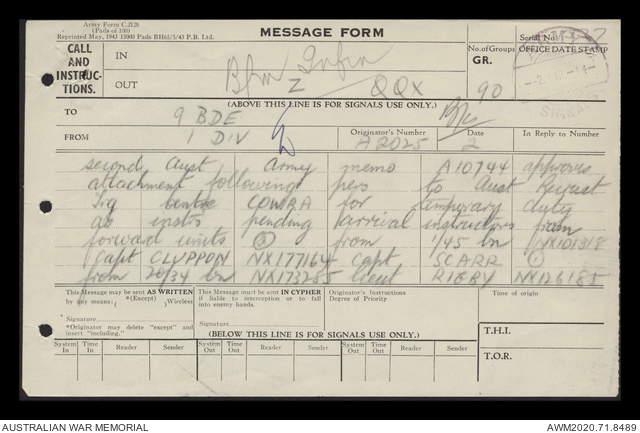 Army Form C.2128
(Pads of 100)
Reprinted May, 1943 15000 Pads BH65/5/43 P.B. Ltd.
MESSAGE FORM
Serial No.
CALL AND INSTRUC-TIONS.
IN
OUT
Z QQX
No. of Groups
GR.
90
OFFICE DATE STAMP
SIGNALS
(ABOVE THIS LINE IS FOR SIGNALS USE ONLY.)
TO 9 BDE
FROM 1 DIV
Originator's Number
A2025
Date
2
In Reply to Number
second Aust Army memo A10744 approves
attachment following pers to Aust Recruit
Trg Centre COWRA for temporary duty
as instrs pending arrival instructors from
forward units (3) from 1/45 bn NX101318
Capt CLUPPON NX177164 Capt SCARR (1)
from 20/34 bn NX173285 Lieut RIGBY NX126185
This Message may be sent AS WRITTEN
by any means: ( *(Except) ) Wireless
Signature
*Originator may delete "except" and
insert "including."
This Message must be sent IN CYPHER
if liable to interception or to fall
into enemy hands.
Signature
Originator's Instructions
Degree of Priority
Time of origin
(BELOW THIS LINE IS FOR SIGNALS USE ONLY.)
T.H.I.
T.O.R.
System In
Time In
Reader
Sender
System Out
Time Out
Reader
Sender
System Out
Time Out
Reader
Sender
AUSTRALIAN WAR MEMORIAL
AWM2020.71.8489